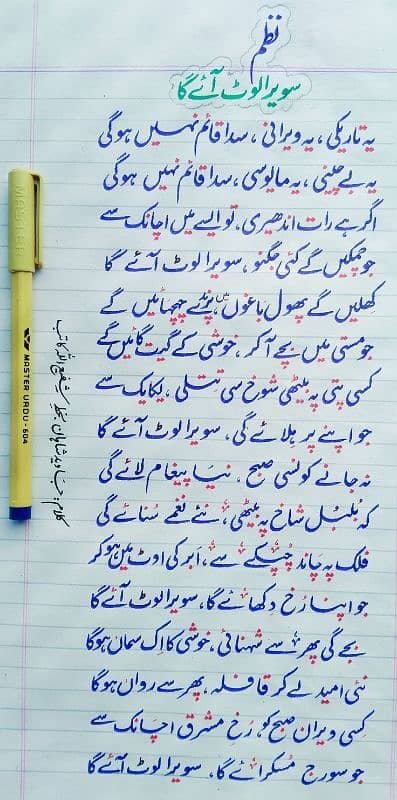 نظم
سویرا لوٹ آئے گا
یہ تاریکی، یہ ویرانی، سدا قائم نہیں ہوگی
یہ بے چینی، یہ مایوسی، سدا قائم نہیں ہوگی
اگر ہے رات اندھیری، تو ایسے میں اچانک سے
جو چمکیں گے کئی جگنو، سویرا لوٹ آئے گا
کھلیں گے پھول باغوں میں، پرندے چہچہائیں گے
جو مستی میں بچے آ کر، خوشی کے گیت گائیں گے
کسی پتی پہ بیٹھی شوخ سی تتلی، یکایک سے
جو اپنے پر ہلائے گی، سویرا لوٹ آئے گا
نہ جانے کونسی صبح، نیا پیغام لائے گی
کہ بُلبُل شاخ پہ بیٹھی، نئے نغمے سُنائے گی
فلک پہ چاند چُپکے سے، اَبر کی اوٹ میں ہو کر
جو اپنا رُخ دکھائے گا، سویرا لوٹ آئے گا
بجے گی پھر سے شہنائی، خوشی کا اِک سماں ہوگا
نئی امید لے کر قافلہ، پھر سے رواں ہوگا
کِسی ویران صبح کو، رُخِ مشرق اچانک سے
جو سورج مُسکرائے گا، سویرا لوٹ آئے گا
MASTER
MASTER URDU-604